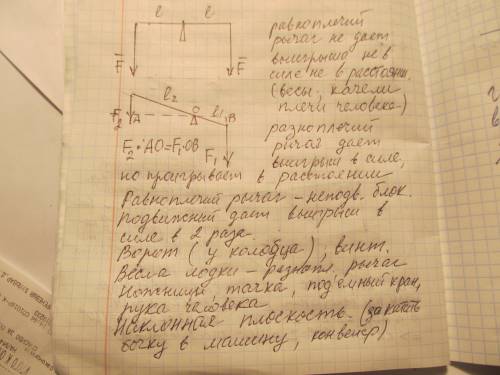 l l
F F
равноплечий
рычаг не дает
выигрыша не в
силе не в расстоянии
(весы, качели
плечи человека)
l2 l1
F2 A O B
F1
F2 · AO = F1 · OB
разноплечий
рычаг дает
выигрыш в силе,
но проигрывает в расстоянии
Равноплечий рычаг – неподв. блок.
Подвижный дает выигрыш в
силе в 2 раза.
Ворот (у колодца), винт.
Весла лодки – разнопл. рычаг
Ножницы, тачка, под'емный кран,
рука человека
Наклонная плоскость. (закатать
бочку в машину, конвейер)